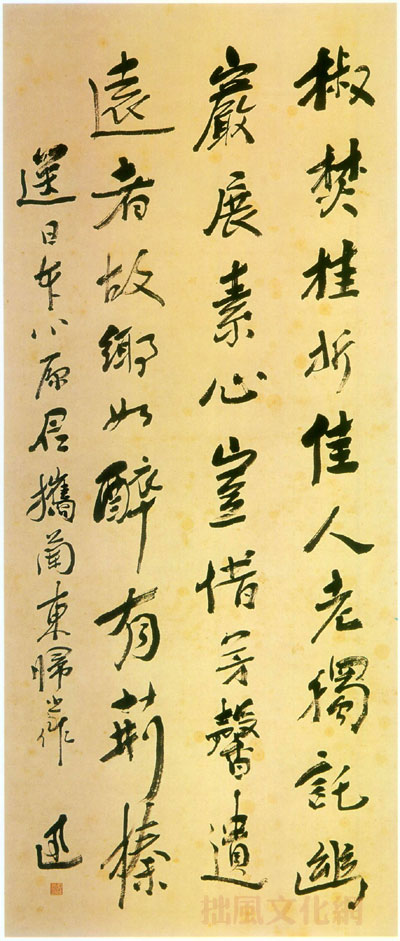 椒焚桂折佳人老獨託幽
巖展素心豈惜芳馨遺
遠者故鄉如醉有荊榛
日本小原君攜蘭東歸之作
迅
拙風文化網